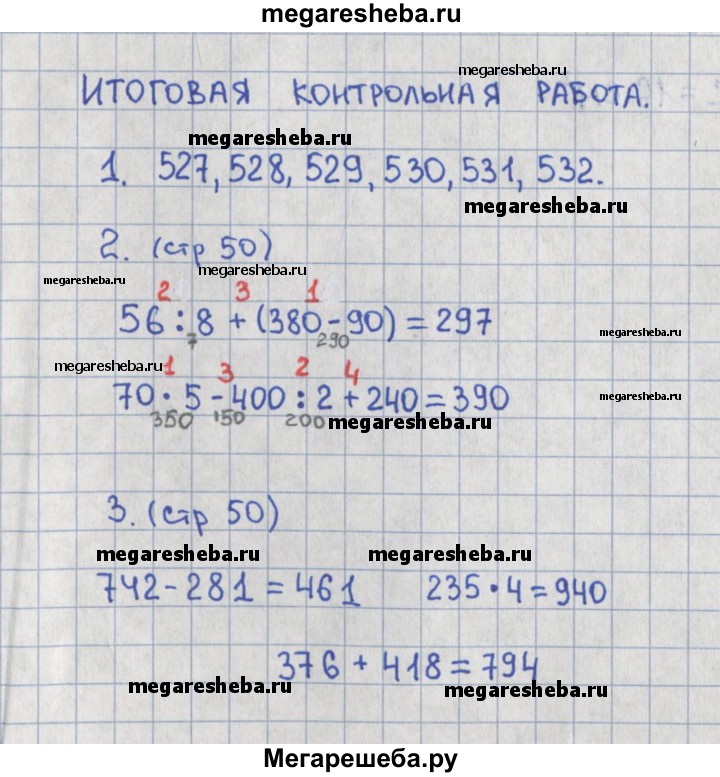 megaresheba.ru
megaresheba.ru
ИТОГОВАЯ КОНТРОЛЬНАЯ РАБОТА.
megaresheba.ru
megaresheba.ru
1. 527, 528, 529, 530, 531, 532.
megaresheba.ru
2. (стр 50)
megaresheba.ru
megaresheba.ru
2 3 1
56 : 8 + (380 - 90) = 297
megaresheba.ru
7 290
megaresheba.ru
1 3 2 4
70 · 5 - 400 : 2 + 240 = 390
megaresheba.ru
350 150 200
megaresheba.ru
3. (стр 50)
megaresheba.ru megaresheba.ru
742 - 281 = 461 235 · 4 = 940
376 + 418 = 794
megaresheba.ru megaresheba.ru
Мегарешеба.ру